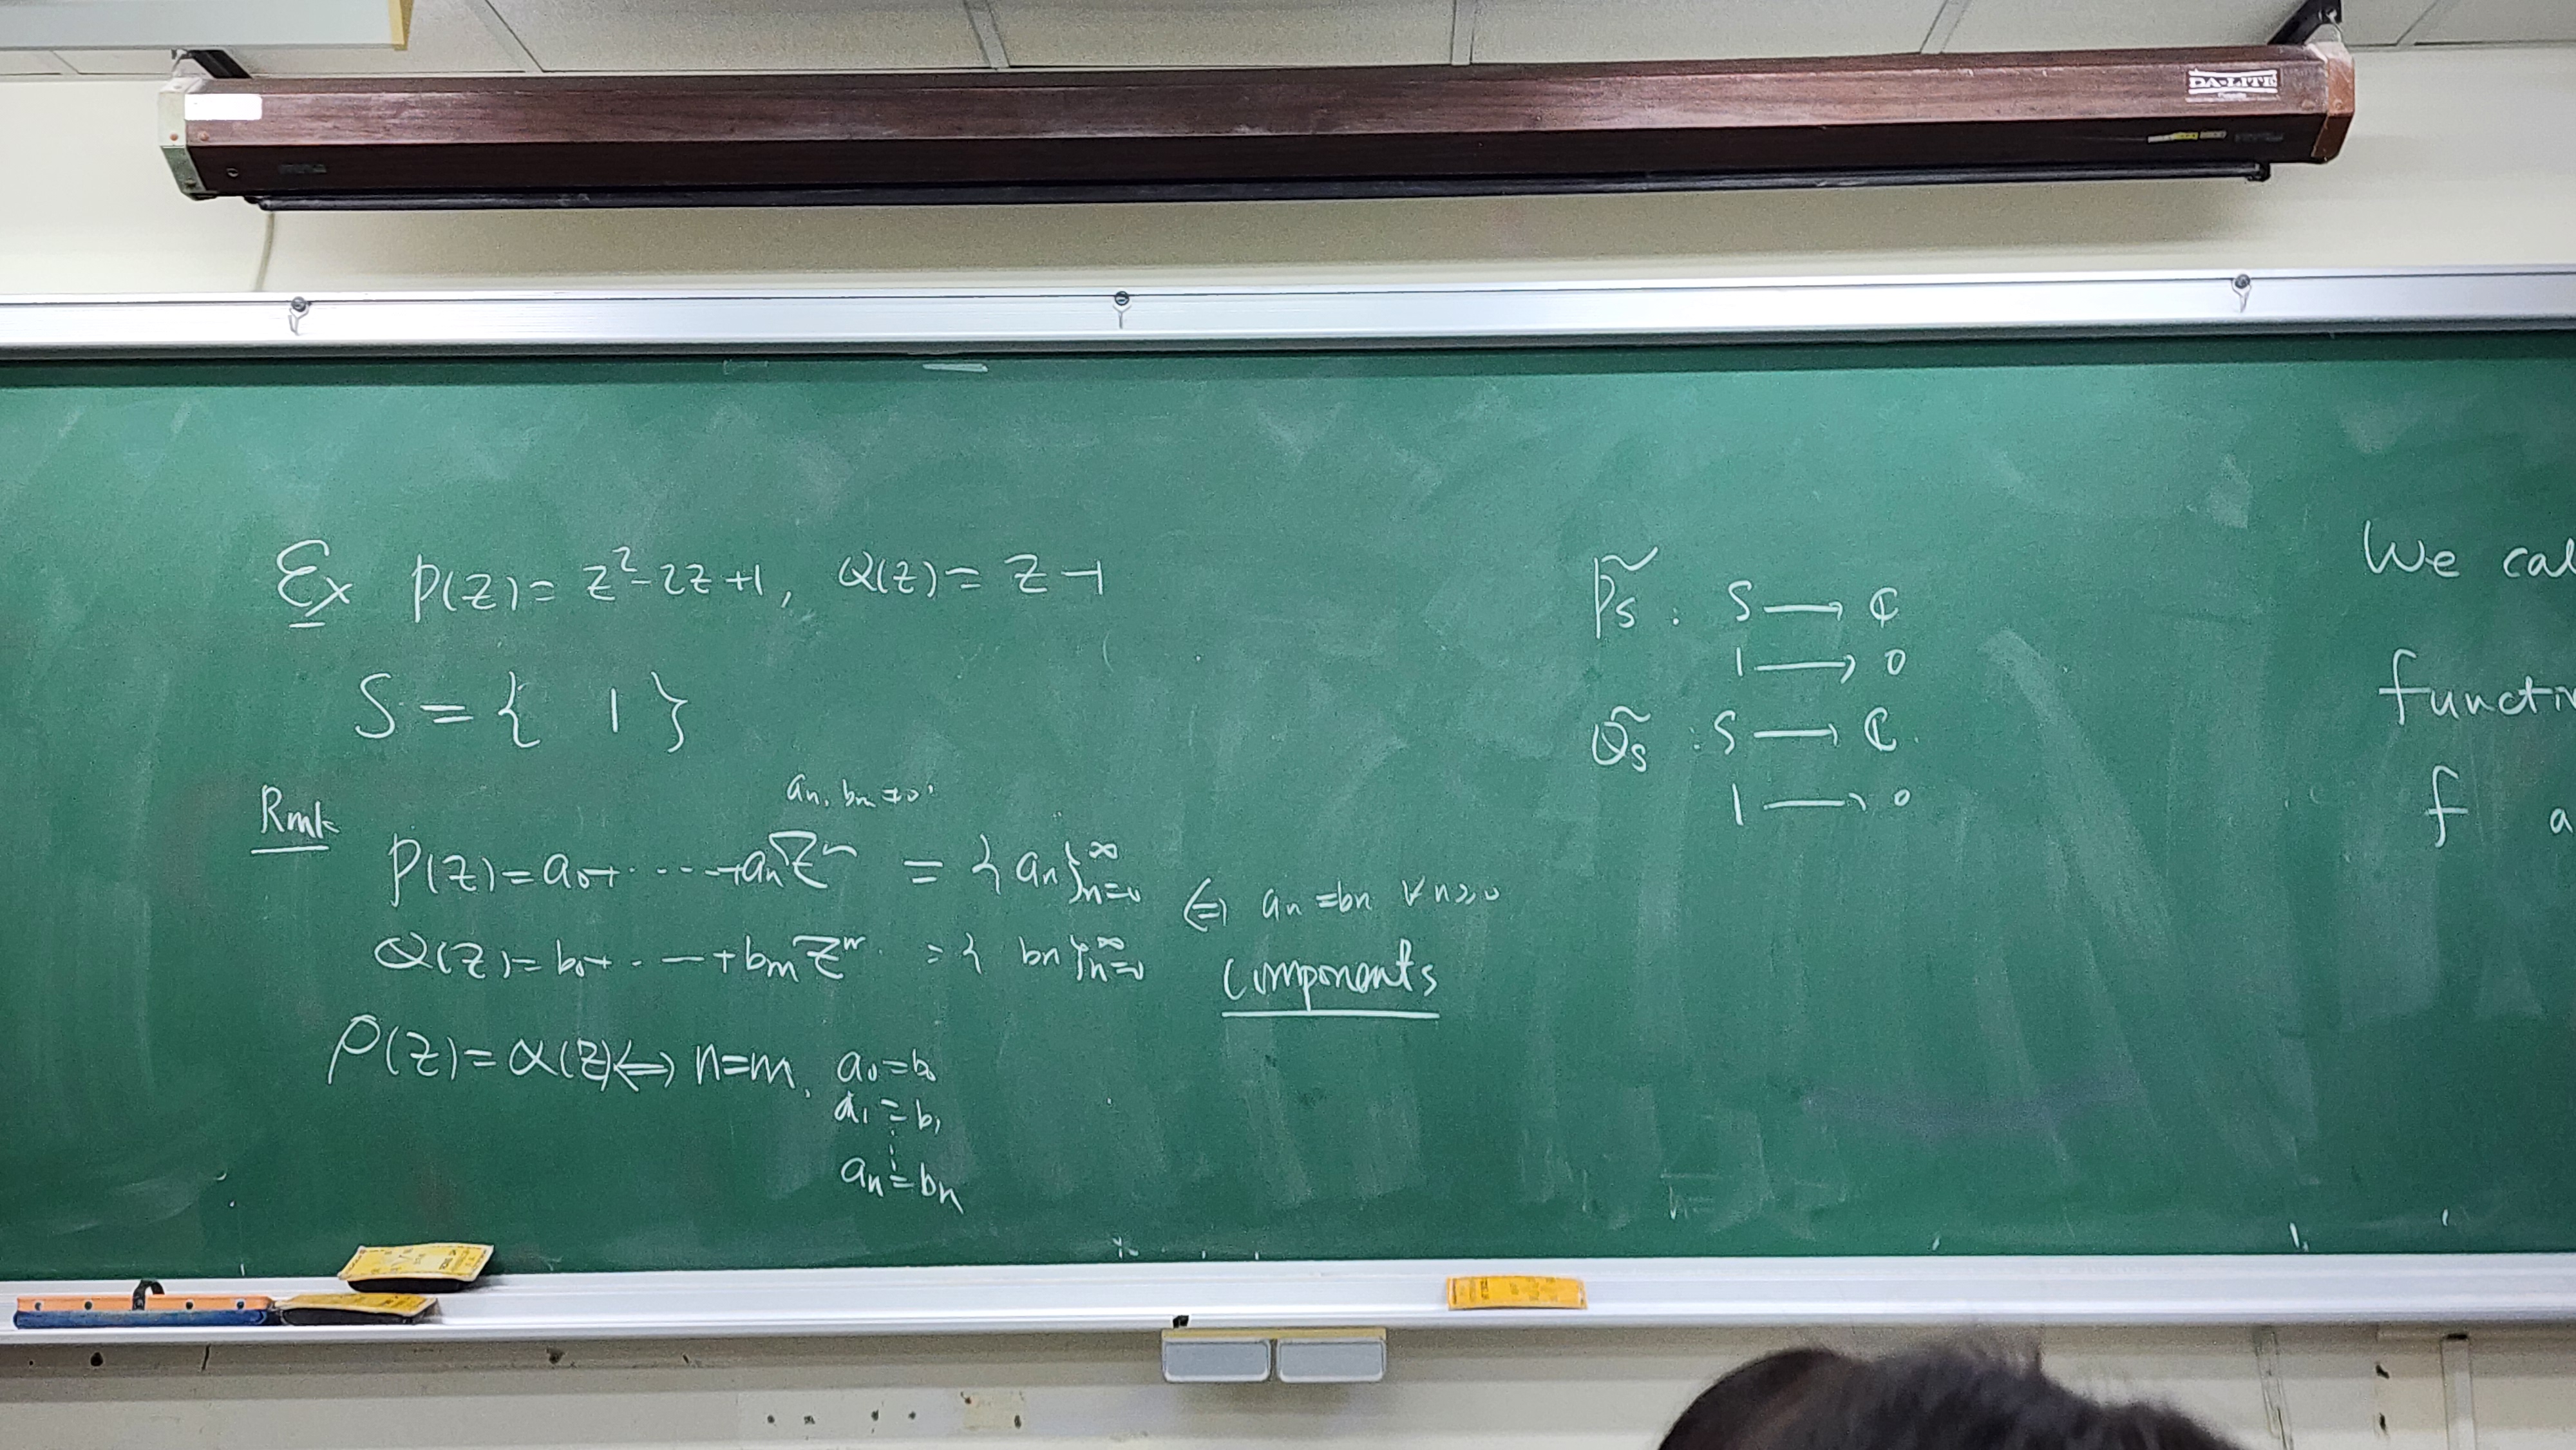 DA-LITE
Ex P(z) = z²-2z+1, Q(z) = z-1
S = { 1 }
Rmk
aₙ, bₘ ≠ 0.
P(z) = a₀+ ····· +aₙzⁿ = {aₙ}ₙ₌₀^∞
Q(z) = b₀+ · — +bₘzᵐ = { bₙ}ₙ₌₀^∞
⇔ aₙ = bₙ ∀ n ≥ 0
components
P(z) = Q(z) ⇔ n=m, a₀ = b₀
a₁ = b₁
⋮
aₙ = bₙ
P̃s : S ⟶ ℂ
1 ⟶ 0
Q̃s : S ⟶ ℂ.
1 ⟶ 0
We cal
functi
f a